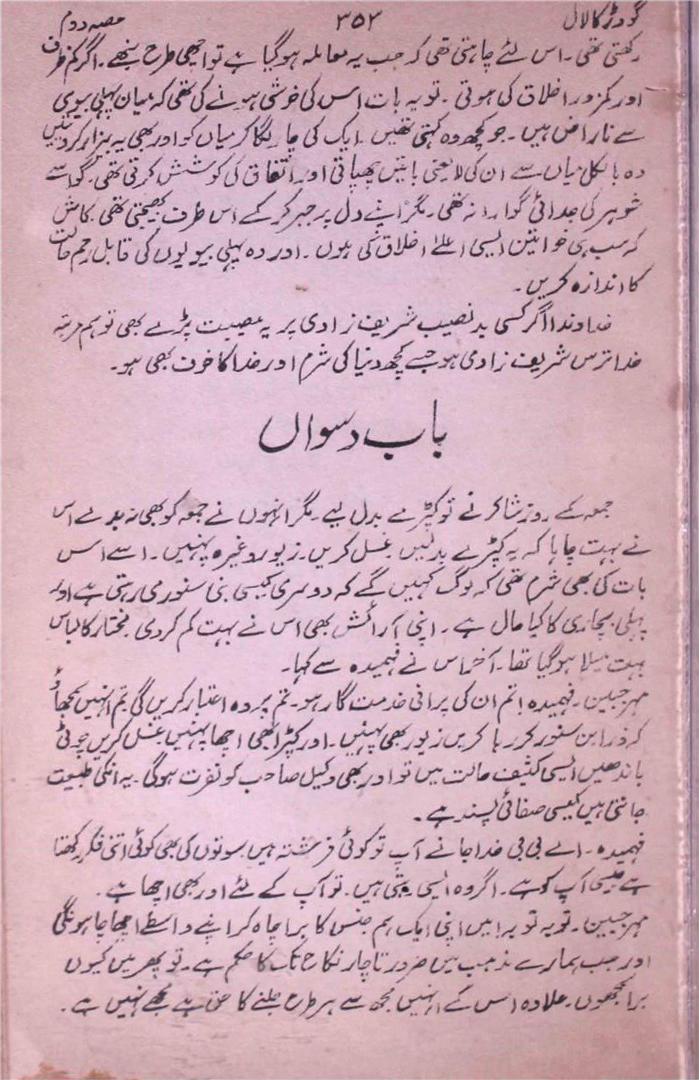 گودڑ کا لال ۳۵۲ حصہ دوم
رکھتی تھی۔ اس لئے چاہتی تھی کہ جب یہ معاملہ ہو گیا ہے تو اچھی طرح نبھے۔ اگر کم ظرف
اور کمزور اخلاق کی ہوتی۔ تو یہ بات اس کی خوشی ہونے کی تھی کہ میاں پہلی بیوی
سے ناراض ہیں۔ جو کچھ وہ کہتی تھیں۔ ایک کی چار لگا کر میاں کو اور بھی بیزار کر دیتیں
وہ بالکل میاں سے ان کی لایعنی باتیں چھپاتی اور اتفاق کی کوشش کرتی تھی۔ گو اسے
شوہر کی جدائی گوارا نہ تھی۔ مگر اپنے دل پر جبر کر کے اس طرف بھیجتی تھی۔ کاش
کہ سب ہی خواتین ایسی اعلےٰ اخلاق کی ہوں۔ اور وہ پہلی بیویوں کی قابل رحم حالت
کا اندازہ کریں۔
خداوندا اگر کسی بدنصیب شریف زادی پر یہ مصیبت پڑے بھی تو ہم مرتبہ
خدا ترس شریف زادی ہو جسے کچھ دنیا کی شرم اور خدا کا خوف بھی ہو۔
باب دسواں
جمعہ کے روز شاکر نے تو کپڑے بدل لیے۔ مگر انہوں نے جمعہ کو بھی نہ بدلے اس
نے بہت چاہا کہ یہ کپڑے بدلیں غسل کریں۔ زیور وغیرہ پہنیں۔ اسے اس
بات کی بھی شرم تھی کہ لوگ کہیں گے کہ دوسری کیسی بنی سنوری رہتی ہے اور
پہلی بیچاری کا کیا حال ہے۔ اپنی آرائش بھی اس نے بہت کم کر دی۔ مختار کا لباس
بہت میلا ہو گیا تھا۔ آخر اس نے فہمیدہ سے کہا۔
مہر جبین۔ فہمیدہ! تم ان کی پرانی خدمت گار ہو۔ تم پر وہ اعتبار کریں گی۔ تم انہیں سمجھاؤ
کہ ذرا بن سنور کر رہا کریں زیور بھی پہنیں۔ اور کپڑا بھی اچھا پہنیں غسل کریں چوٹی
باندھیں ایسی کثیف حالت میں تو اور بھی وکیل صاحب کو نفرت ہوگی۔ یہ انکی طبیعت
جانتی ہیں کیسی صفائی پسند ہے۔
فہمیدہ۔ اے بی بی خدا جانے آپ تو کوئی فرشتہ ہیں۔ سوتوں کی بھی کوئی اتنی فکر رکھتا
ہے جیسی آپ کو ہے۔ اگر وہ ایسی رہتی ہیں۔ تو آپ کے لئے اور بھی اچھا ہے۔
مہر جبین۔ توبہ توبہ! میں اپنی ایک ہم جنس کا برا چاہ کر اپنے واسطے اچھا چاہونگی
اور جب ہمارے مذہب میں ضرورتاً چار نکاح تک کا حکم ہے۔ تو پھر میں کیوں
برا سمجھوں۔ علاوہ اس کے انہیں مجھ سے ہر طرح جلنے کا حق ہے مجھے نہیں ہے۔